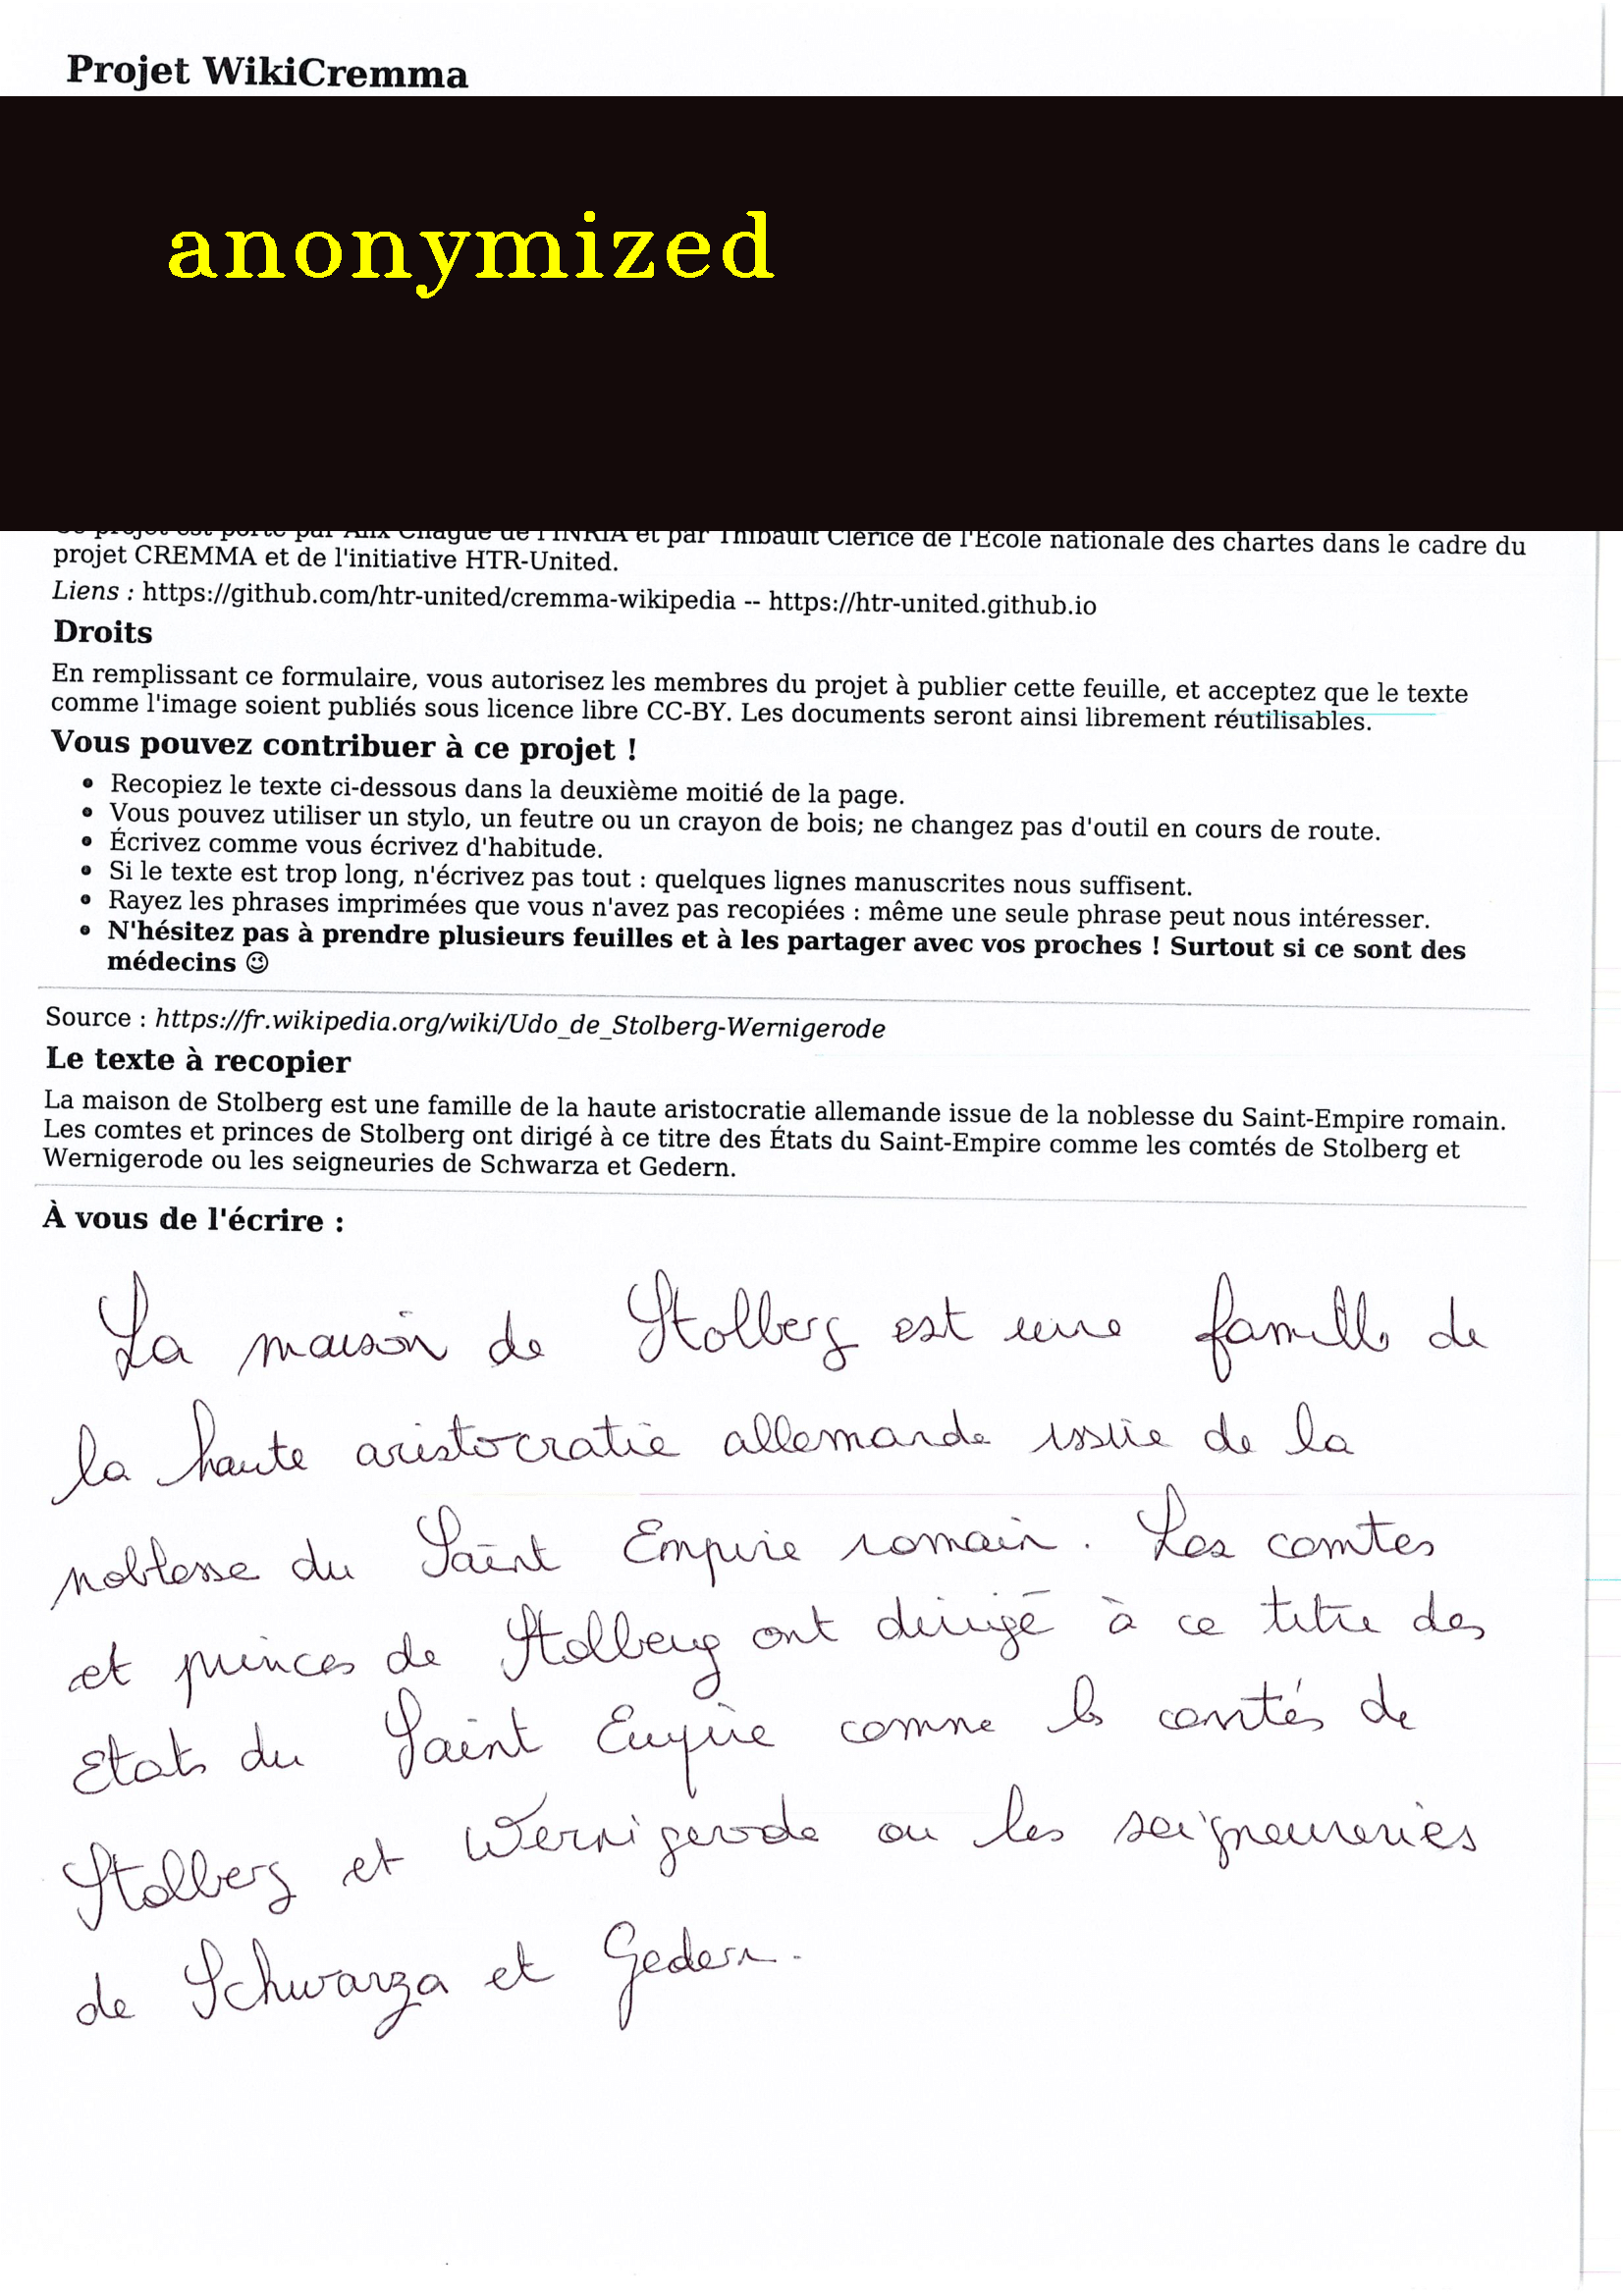 Projet WikiCremma
anonymized
Ce projet est porté par Alix Chagué de l'INRIA et par Thibault Clérice de l'École nationale des chartes dans le cadre du
projet CREMMA et de l'initiative HTR-United.
Liens : https://github.com/htr-united/cremma-wikipedia -- https://htr-united.github.io
Droits
En remplissant ce formulaire, vous autorisez les membres du projet à publier cette feuille, et acceptez que le texte
comme l'image soient publiés sous licence libre CC-BY. Les documents seront ainsi librement réutilisables.
Vous pouvez contribuer à ce projet !
• Recopiez le texte ci-dessous dans la deuxième moitié de la page.
• Vous pouvez utiliser un stylo, un feutre ou un crayon de bois; ne changez pas d'outil en cours de route.
• Écrivez comme vous écrivez d'habitude.
• Si le texte est trop long, n'écrivez pas tout : quelques lignes manuscrites nous suffisent.
• Rayez les phrases imprimées que vous n'avez pas recopiées : même une seule phrase peut nous intéresser.
• N'hésitez pas à prendre plusieurs feuilles et à les partager avec vos proches ! Surtout si ce sont des
médecins ☺
Source : https://fr.wikipedia.org/wiki/Udo_de_Stolberg-Wernigerode
Le texte à recopier
La maison de Stolberg est une famille de la haute aristocratie allemande issue de la noblesse du Saint-Empire romain.
Les comtes et princes de Stolberg ont dirigé à ce titre des États du Saint-Empire comme les comtés de Stolberg et
Wernigerode ou les seigneuries de Schwarza et Gedern.
À vous de l'écrire :
La maison de Stolberg est une famille de
la haute aristocratie allemande issue de la
noblesse du Saint Empire romain. Les comtes
et princes de Stolberg ont dirigé à ce titre des
Etats du Saint Empire comme les comtés de
Stolberg et Wernigerode ou les seigneureries
de Schwarza et Gedern.